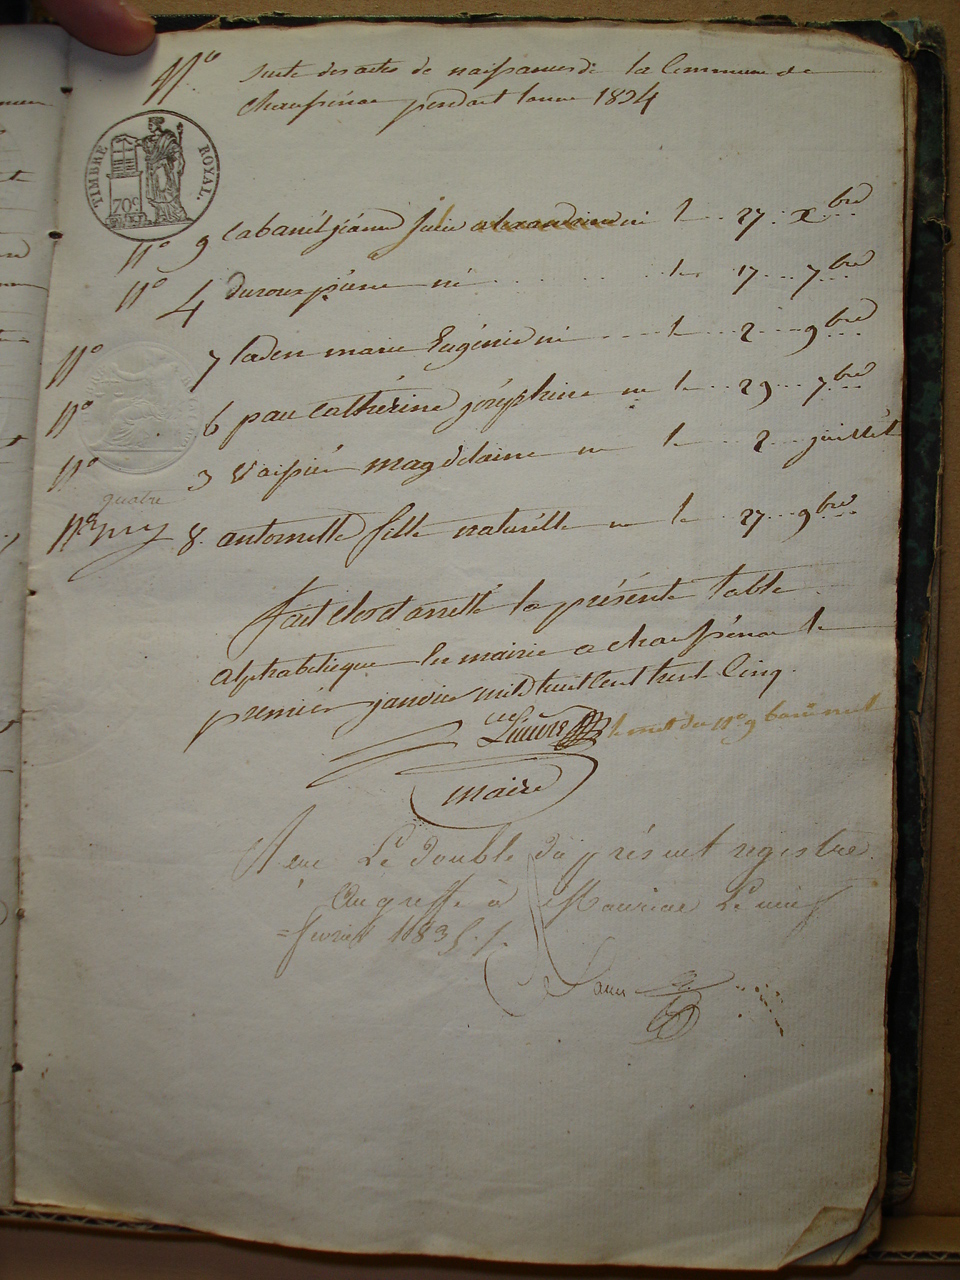 N° suite des actes de naissances de la Commune de
Chaussenac pendant lanné 1834
TIMBRE ROYAL.
70c
N° 9 Cabanil jéanne Julie alexandrine né l .. 27 .. xbre
N° 4 duroux pierre né ........ le .. 17 ... 7bre
N° 7 laden marie Eugénie né .... l .. 2 ... 9bre
N° 6 pau Cathérine joséphine ne le .. 29 ... 7bre
N° 3 Vaissié magdelaine ne le .. 2 .. juillét
quatre
N° 8. antoinette fille naturélle ne le .. 27 .. 9bre
fait clos et arretté la présente table
alphabétique En mairie a chaussénac le
premiér janvier mil huit Cent trente Cinq.
le mot du N° 9 barré nul
maire
Reçu Le double du présent registre
Au greffe à Mauriac Le neuf
=fevrier 1835 ./.